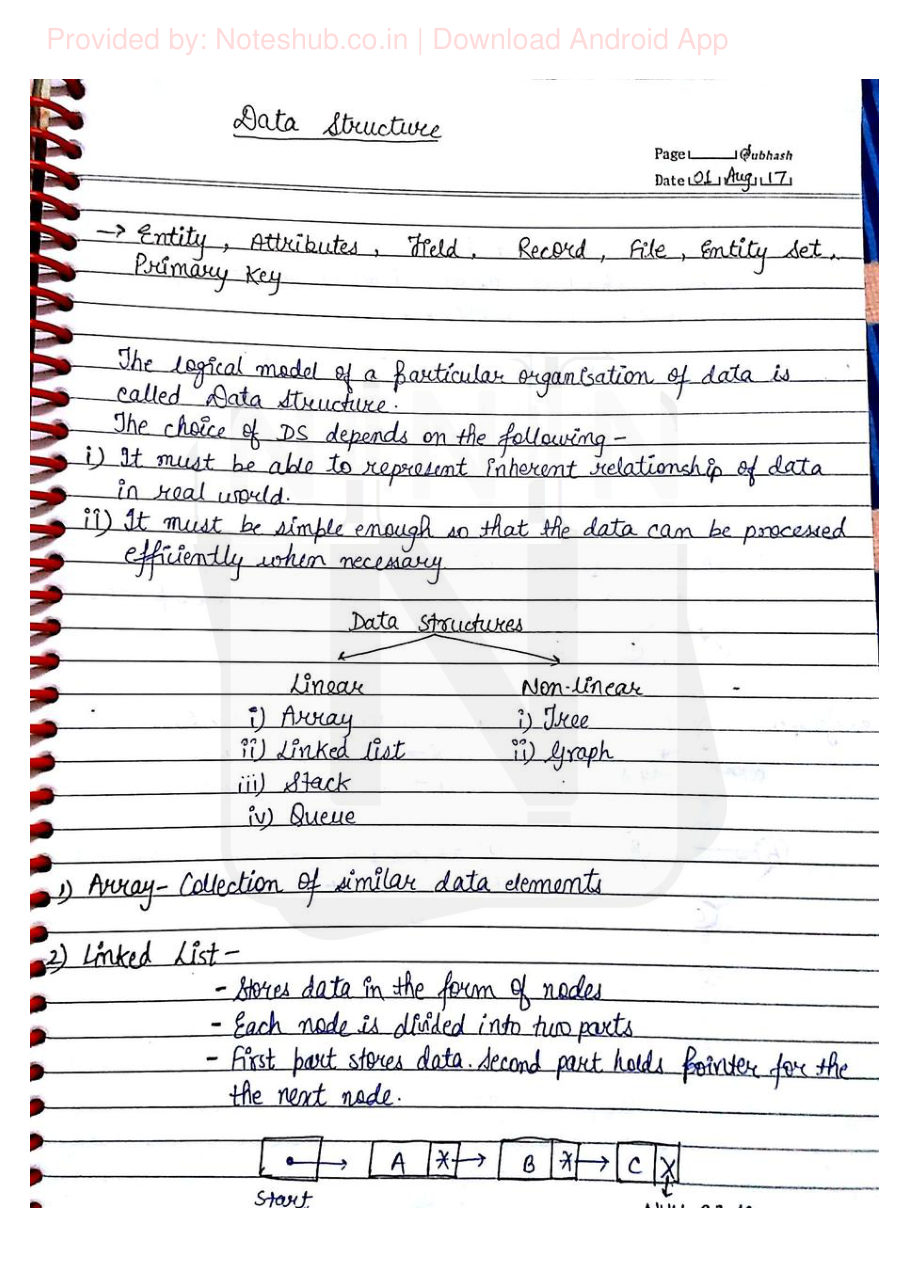 Provided by: Noteshub.co.in | Download Android App
Data Structure
Page Subhash
Date 01 Aug 17
→ Entity, Attributes, Field, Record, File, Entity Set,
Primary Key
The logical model of a particular organisation of data is
called Data Structure.
The choice of DS depends on the following -
i) It must be able to represent inherent relationship of data
in real world.
ii) It must be simple enough so that the data can be processed
efficiently when necessary
Data Structures
Linear Non-linear
i) Array i) Tree
ii) Linked list ii) Graph
iii) Stack
iv) Queue
1) Array - Collection of similar data elements
2) Linked List -
- Stores data in the form of nodes
- Each node is divided into two parts
- First part stores data. Second part holds pointer for the
the next node.
A * B * C X
Start